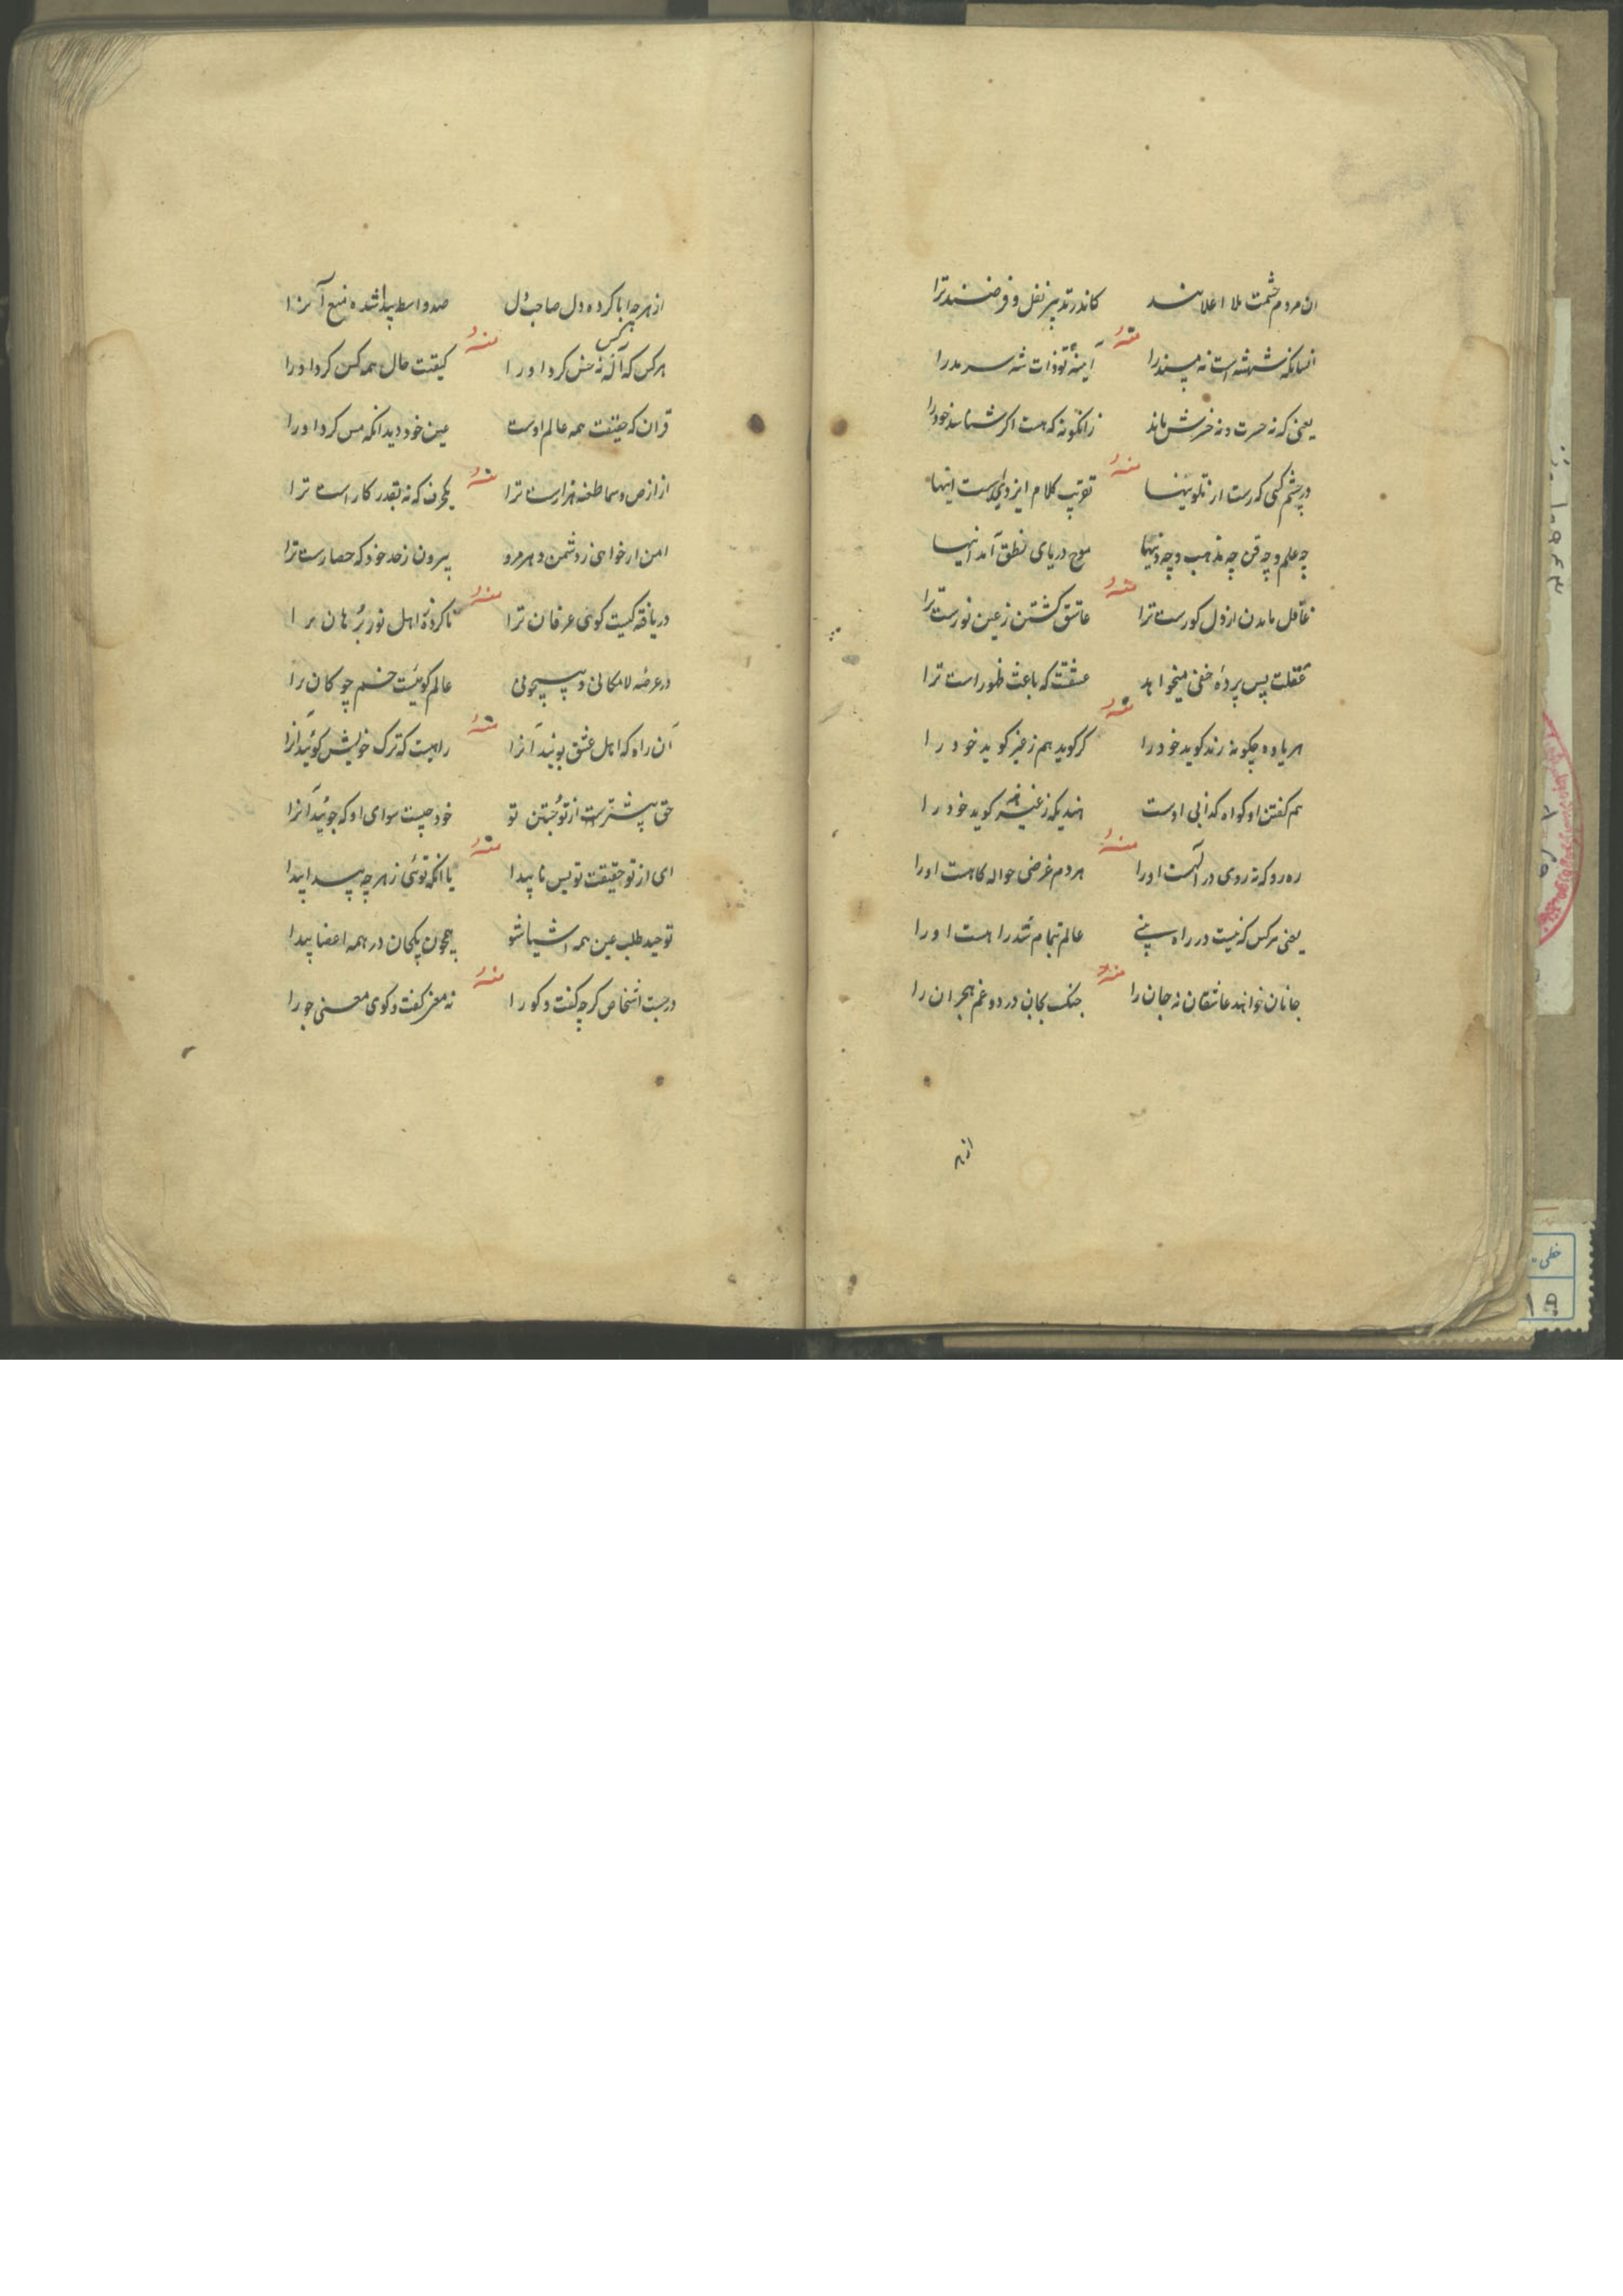 ان مردم چشمت ملا اعلا اند کاندر تدبیر نفل و فرضند ترا
منه
آینهٔ تو ذات شه سرمد را
یعنی که نه حسرت و نه خرسش ماند زانگونه که هست اگر شناسد خود را
منه
در چشم کسی که رست از تلوینها کلام ایزدی است اینها
چه علم و چه فن چه مذهب و چه دینها موج دریای نطق آمد اینها
منه
غافل ماندن از دل کورست ترا عاشق گشتن ز عین نورست ترا
عقلت پس پردهٔ خفی میخواهد عشقت که باعث ظهور است ترا
منه
هر یاوه چگونه رند کوید خود را کر کوید هم ز خیر کوید خود را
هم کفتن او کواه کذابی اوست کوید خود را
منه
ره رو که نه روی در آلهست اورا هر دم غرضی حواله کاهست اورا
یعنی هر کس که نیست در راه عالم تمام شد را هست اورا
منه
جانان خواهند عاشقان نه جان را جنک بجان درد و غم هجران را
از هر
از هر چه ابا کرده دل صاحب دل صد واسطه پیدا شده منع آنرا
منه
هر کس که نه حس کرد اورا کیفیت حال همه کس کرد اورا
قران که حقیقت همه عالم اوست عین خود دید انکه مس کرد اورا
منه
از ارض و سما طعنه هزارست ترا یکحرف که نه بقدر کار است ترا
امن ار خواهی ز دشمن و هر مرو بیرون ز حد خود که حصارست ترا
منه
دریافته کیست کوی عرفان ترا ناکردهٔ اهل نور برهان را
در عرصه لامکانی و بیچونی عالم کوییست خم چوکان را
منه
آن راه که اهل عشق پویند آنرا راهیست که ترک خویش کوئید آنرا
حق پیشترست از تو جستن تو خود چیست سوای او که جوئید آنرا
منه
ای از تو حقیقت تو بس ناپیدا با آنکه توئی ز هر چه پیدا پیدا
توحید طلب عین همه اشیا شو همچون یکجان در همه اعضا پیدا
منه
در جست اشخاص کرچه کفت و کو را نه مغز کفت و کوی معنی جو را